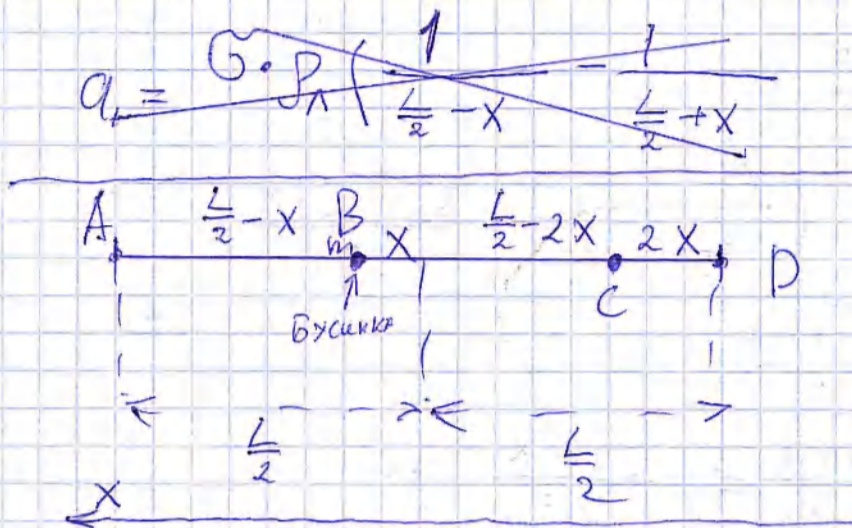 a₁ = G · ρ_л ( 1/(L/2 - x) - 1/(L/2 + x)
A L/2 - x B x L/2 - 2x 2x D
m C
Бусинка
L/2 L/2
x